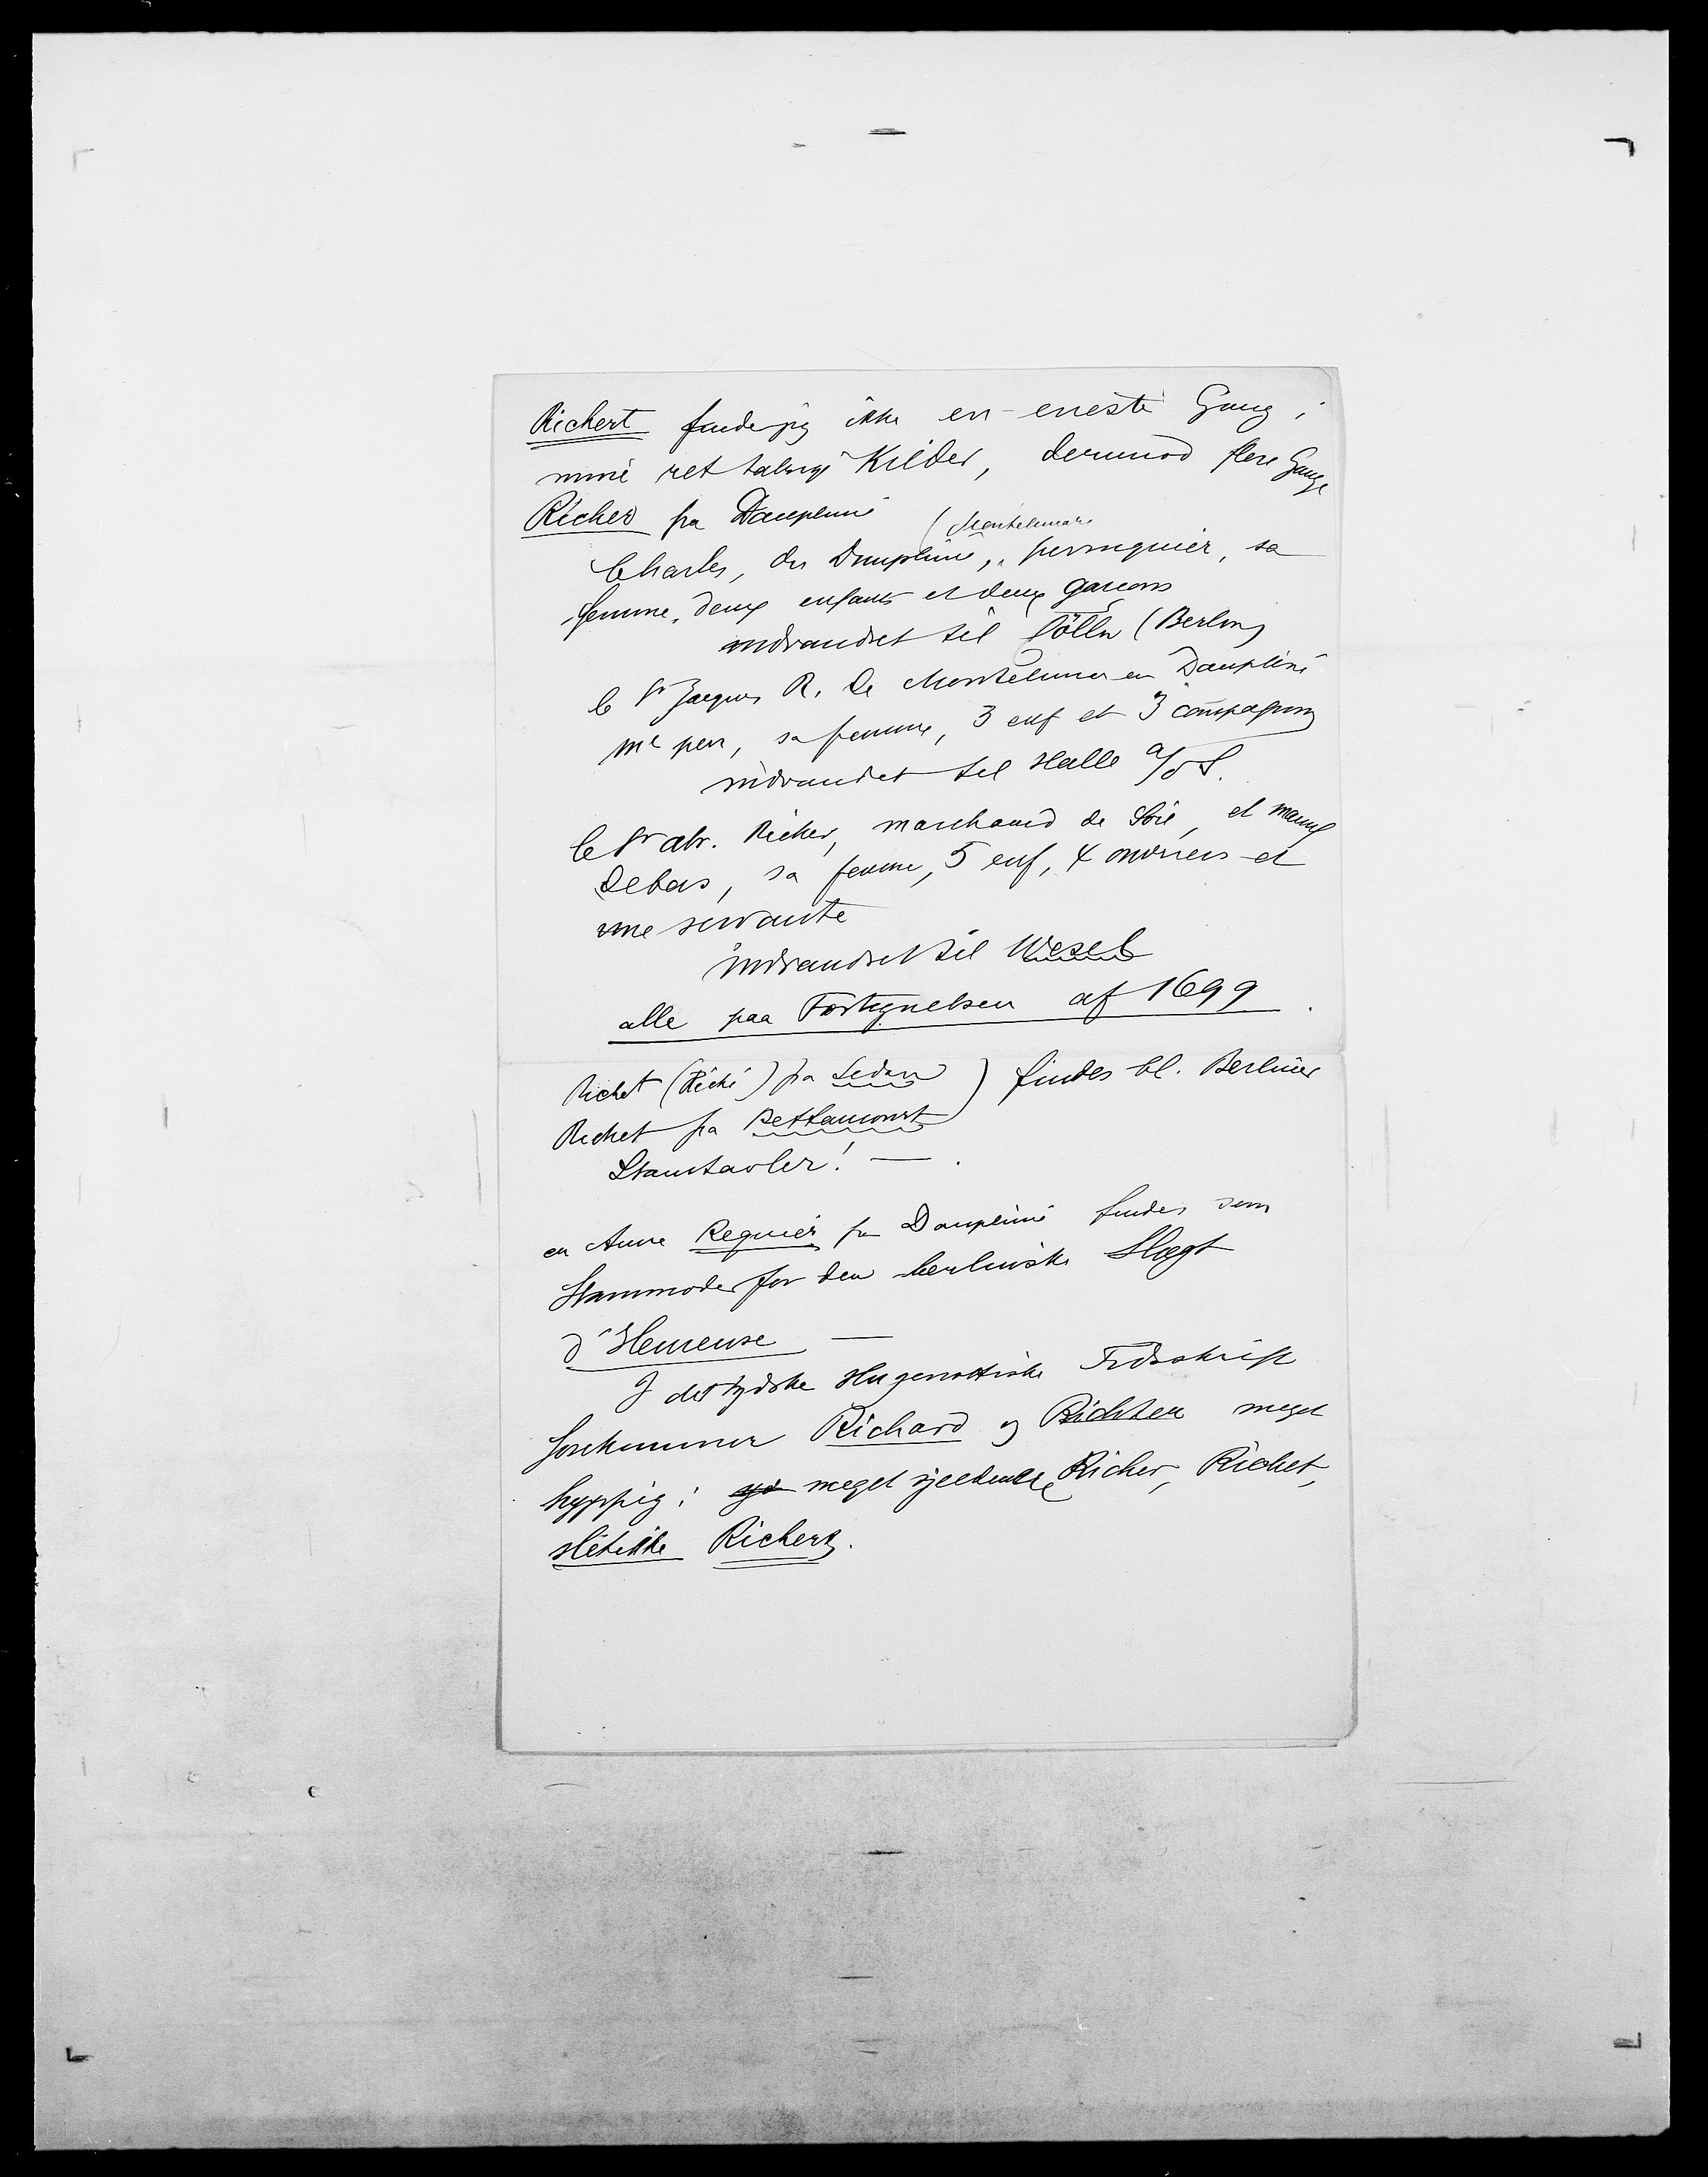 Richert finder jeg ikke en eneste Gang i
mine ret talrige Kilder, derimod flere Gange
Richer fra Dauphiné
(Montelimar
Charles, du Dauphiné, perruquier, sa
femme, deux enfants et deux garcons
indvandret til Cölln (Berlin)
le Sr Jacques R. de Montelimar en Dauphiné
me per, sa femme, 3 enf et 3 compagnons
indvandret til Halle a/d S.
le Sr abr. Richer, marchand de Soie, et manuf
de bas, sa femme, 5 enf, 4 ouvriers et
une servante
indvandret til Wesel
alle paa Fortegnelsen af 1699.
Richet (Riché) fra Sedan ) findes bl. Berliner
Richet fra Bettancourt
Stamtavler! — .
en Anne Requier fra Dauphiné findes som
Stammoder for den berlinske Slægt
d'Heureuse —
I det tydske Hugenottiske Tidsskrift
forekommer Richard og Richter meget
hyppig; meget sjeldnere Richer, Richet,
slet ikke Richert.